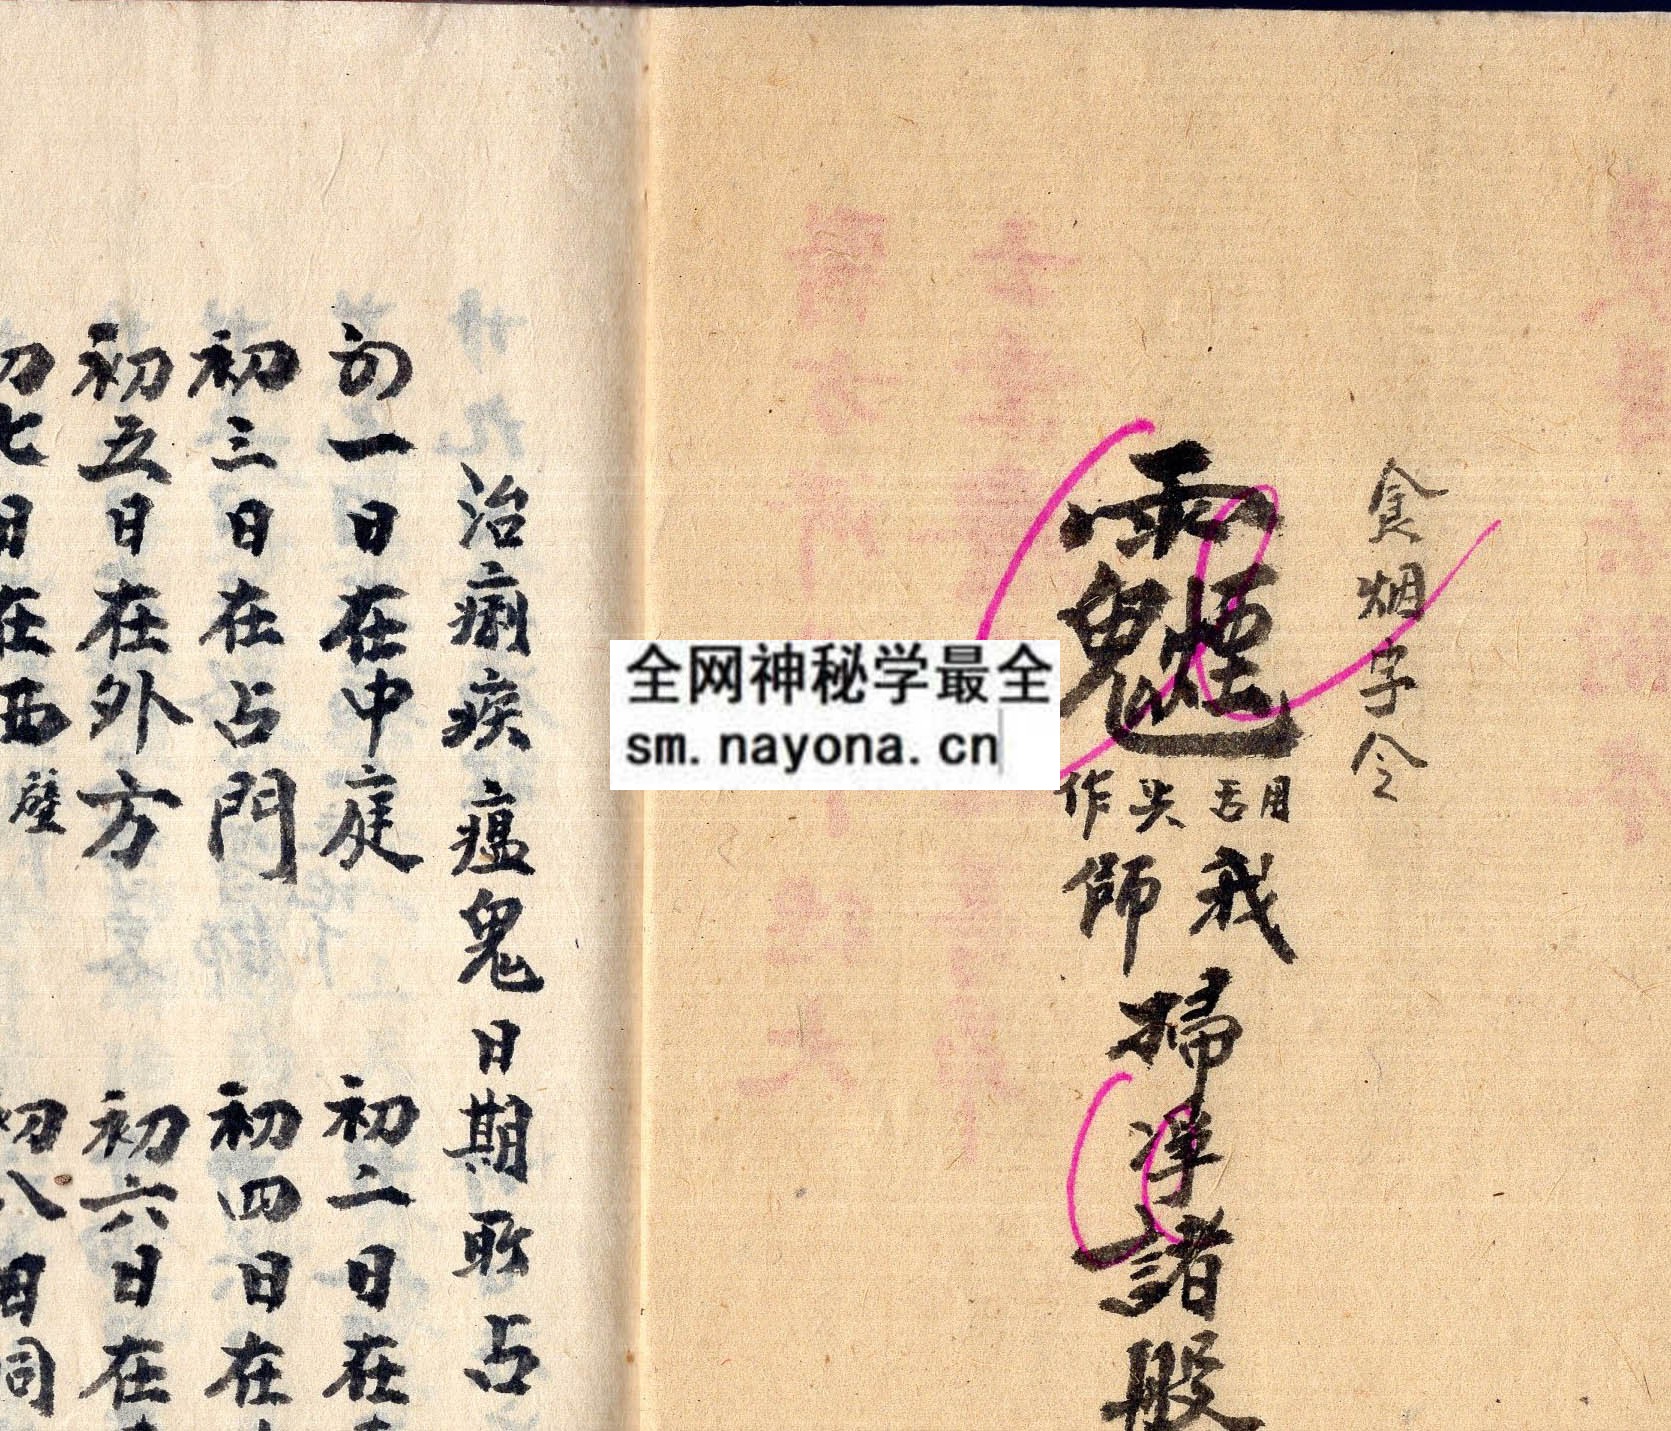 食烟字令
䨻
用舌尖作
我師
掃凈諸般
治痢疾瘟鬼日期所占
初一日在中庭
初二日在
初三日在占門
初四日在
初五日在外方
初六日在
初七日在西壁
初八日同
全网神秘学最全
sm.nayona.cn